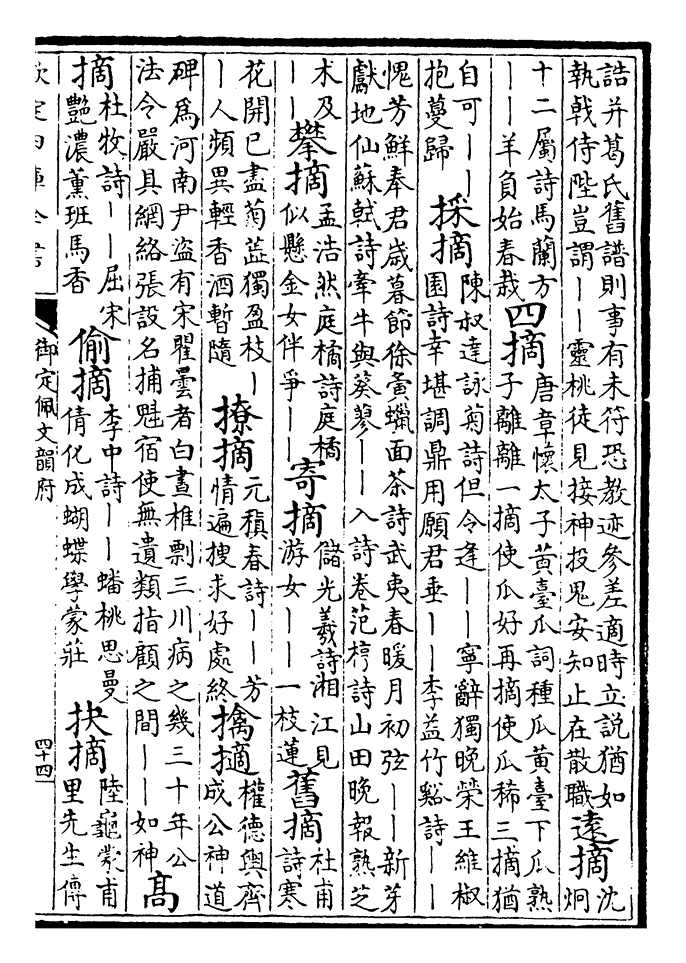 誥并葛氏舊譜則事有未符恐教迹參差適時立説猶如
執戟侍陛豈謂——靈桃徒見接神投鬼安知止在散職
遠摘
沈
炯
十二屬詩馬蘭方
——羊負始春栽
四摘
唐章懷太子黄臺瓜詞種瓜黄臺下瓜熟
子離離一摘使瓜好再摘使瓜稀三摘猶
自可——
抱蔓歸
採摘
陳叔達詠菊詩但令逢——寧辭獨晚榮王維椒
園詩幸堪調鼎用願君垂——李益竹谿詩——
愧芳鮮奉君歲暮節徐夤蠟面茶詩武夷春暖月初弦——新芽
獻地仙蘇軾詩牽牛與葵蓼——入詩卷范梈詩山田晚報熟芝
术及
——
攀摘
孟浩然庭橘詩庭橘
似懸金女伴爭——
寄摘
儲光羲詩湘江見
游女——一枝蓮
舊摘
杜甫
詩寒
花開已盡菊蕋獨盈枝—
—人頻異輕香酒暫隨
撩摘
元稹春詩——芳
情遍搜求好處終
擒擿
權德輿齊
成公神道
碑為河南尹盗有宋瞿曇者白晝椎剽三川病之幾三十年公
法令嚴具網絡張設名捕魁宿使無遺類指顧之間——如神
高
摘
杜牧詩——屈宋
艷濃薰班馬香
偷摘
李中詩——蟠桃思曼
倩化成蝴蝶學蒙莊
抉摘
陸龜蒙甫
里先生傳
欽定四庫全書
御定佩文韻府
四十四